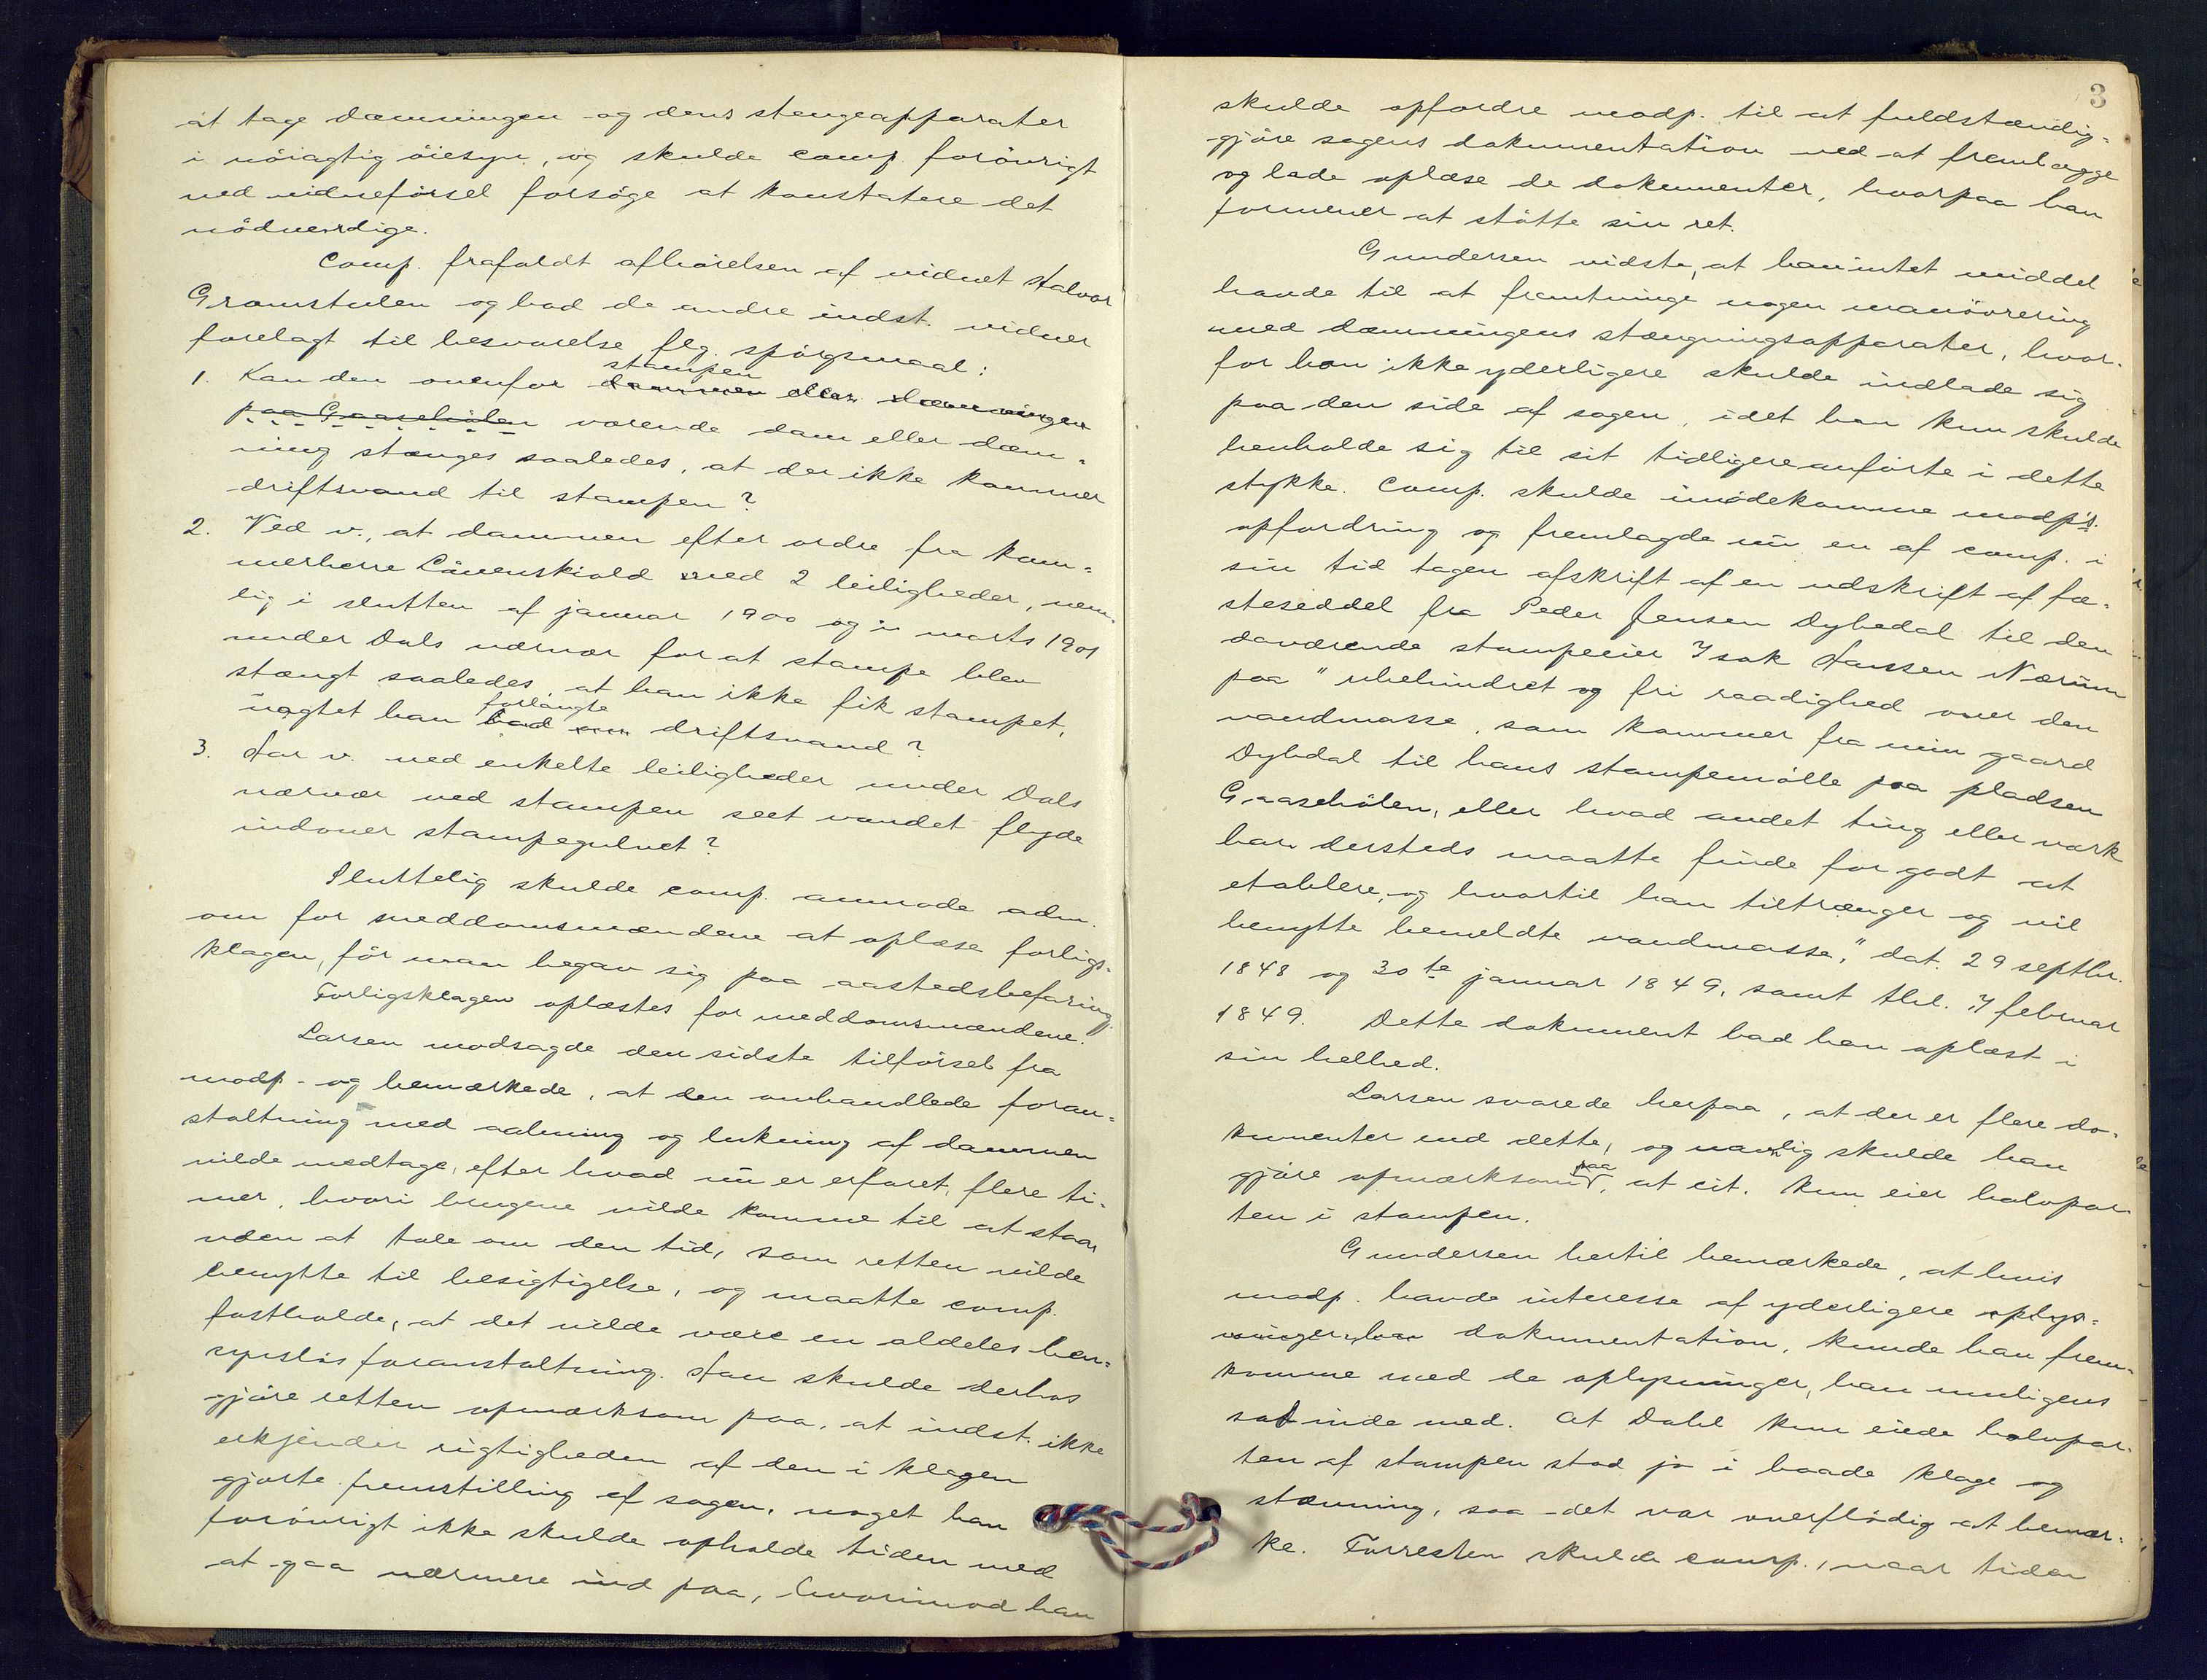 at tage dæmningen og dens stengeapparater
i nöiagtig öiesyn, og skulde comp. forövrigt
ved vidneförsel forsöge at konstatere det
nödvendige.
Comp. frafaldt afhörelsen af vidnet Halvor
Gromstulen og bad de andre indst. vidner
forelagt til besvarelse flg. spörgsmaal:
1. Kan den ovenfor stampen dammen eller dæmningen
paa Gaasehölen værende dam eller dæm-
ning stænges saaledes, at der ikke kommer
driftsvand til stampen?
2. Ved v., at dammen efter ordre fra kam-
merherre Lövenskiold ved 2 leiligheder, nem-
lig i slutten af januar 1900 og i marts 1901
under Dals nærvær for at stampe blev
stængt saaledes, at han ikke fik stampet,
uagtet han forlangte bad om driftsvand?
3. Har v. ved enkelte leiligheder under Dals
nærvær ved stampen seet vandet flyde
indover stampegulvet?
Sluttelig skulde comp. anmode adm.
om for meddomsmændene at oplæse forligs-
klagen, för man begav sig paa aastedsbefaring.
Forligsklagen oplæstes for meddomsmændene.
Larsen modsagde den sidste tilförsel fra
modp. og bemærkede, at den omhandlede foran-
staltning med aabning og lukning af dammen
vilde medtage, efter hvad nu er erfaret, flere ti-
mer, hvori brugene vilde komme til at staa,
uden at tale om den tid, som retten vilde
benytte til besigtigelse, og maatte comp.
fastholde, at det vilde være en aldeles hen-
synslös foranstaltning. Han skulde derhos
gjöre retten opmærksom paa, at indst. ikke
erkjender rigtigheden af den i klagen
gjorte fremstilling af sagen, noget han
forövrigt ikke skulde opholde tiden med
at gaa nærmere ind paa, hvorimod han
3
skulde opfordre modp. til at fuldstændig-
gjöre sagens dokumentation ved at fremlægge
og lade oplæse de dokumenter, hvorpaa han
formener at stötte sin ret.
Gundersen vidste, at han intet middel
havde til at fremtvinge nogen manövrering
med dæmningens stængningsapparater, hvor-
for han ikke yderligere skulde indlade sig
paa den side af sagen, idet han kun skulde
henholde sig til sit tidligere anförte i dette
stykke. Comp. skulde imödekomme modp's.
opfordring og fremlagde nu en af comp. i
sin tid tagen afskrift af en udskrift af fæ-
steseddel fra Peder Jensen Dybedal til den
daværende stampeeier Isak Hanssen Nærum
paa "ubehindret og fri raadighed over den
vandmasse, som kommer fra min gaard
Dybdal til hans stampemölle paa pladsen
Gaasehölen, eller hvad andet ting eller værk
han dersteds maatte finde for godt at
etablere, og hvortil han tiltrænger og vil
benytte bemeldte vandmasse," dat. 29 septbr.
1848 og 30te januar 1849, samt thl. 7 februar
1849. Dette dokument bad han oplæst i
sin helhed.
Larsen svarede herpaa, at der er flere do-
kumenter end dette, og navnlig skulde han
gjöre opmærksom paa, at cit. kun eier halvpar-
ten i stampen.
Gundersen hertil bemærkede, at hvis
modp. havde interesse af yderligere oplys-
dokumentation, kunde han frem-
komme med de oplysninger, han muligens
sad inde med. At Dahl kun eiede halvpar-
ten af stampen stod jo i baade klage og
stævning, saa det var overflödig at bemær-
ke. Forresten skulde comp., naar tiden